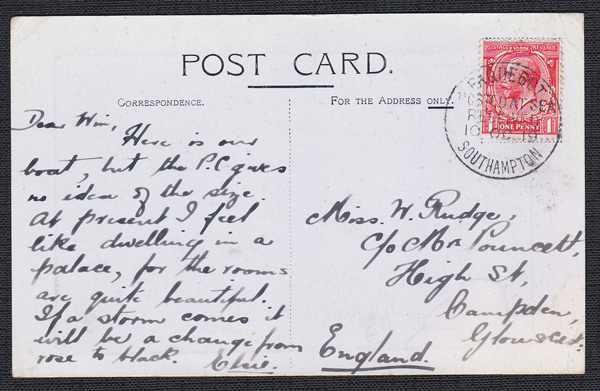 POST CARD.
CORRESPONDENCE.
FOR THE ADDRESS ONLY.
POSTAGE REVENUE
ONE PENNY
PAQUEBOT
POSTED AT SEA
RECEIVED
SOUTHAMPTON
Dear Win,
Here is our
boat, but the P.C gives
no idea of the size.
At present I feel
like dwelling in a
palace, for the rooms
are quite beautiful.
If a storm comes it
will be a change from
rose to black. Elsie.
Miss. W. Rudge,
c/o Mr Pouncett,
High St,
Campden,
Glouscest.
England.